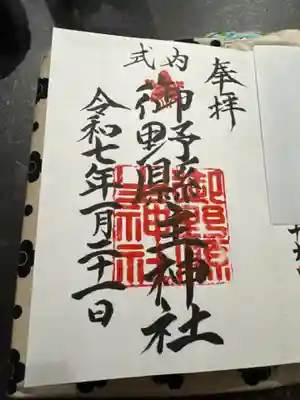 奉拝
式内
御野県主神社
御野縣主神社
令和七年一月二十一日